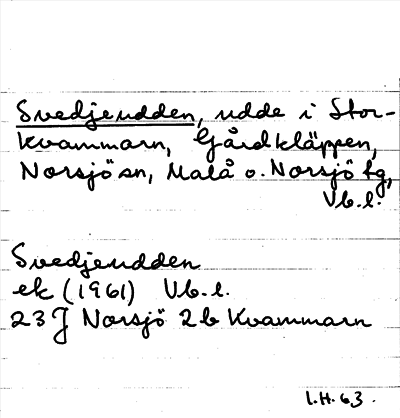 Svedjeudden, udde i Stor-
kvammarn, Gårdkläppen,
Norsjö sn, Malå o. Norsjö tg,
Vb.l.
Svedjeudden
ek (1961) Vb.l.
23J Norsjö 2b Kvammarn
I.H.63.